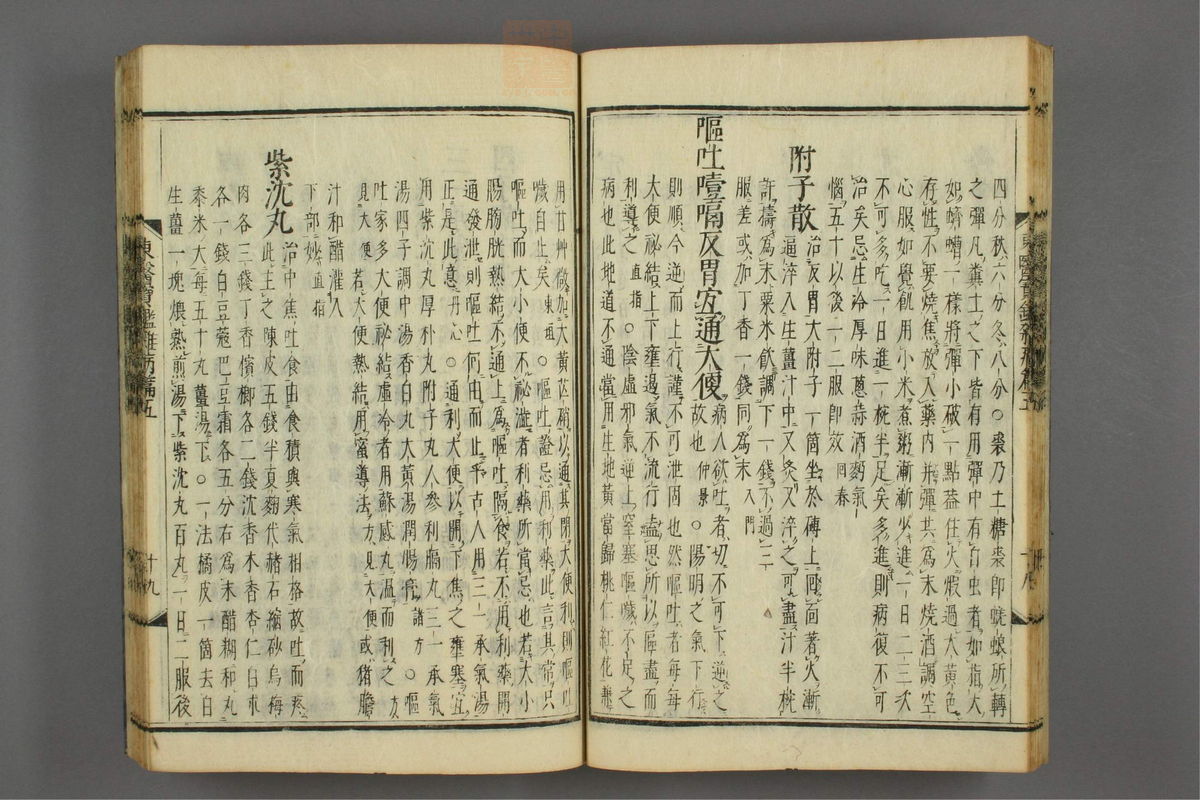 四分秋六分冬八分○裊乃土糖裊卽蜣蜋所轉
之彈凡糞土之下皆有用彈中有白虫者如指大
如蠐螬一樣將彈小破一點益住火煅過大黃色
存性不要燒焦放入藥內飛彈共為末燒酒調空
心服如覺飢用小米煮粥漸漸少進一日二三次
不可多吃一日進一梡半足矣多進則病復不可
治矣忌生冷厚味蔥蒜酒麪氣
惱五十以後一二服卽效回春
附子散治反胃大附子一箇坐於磚上四面著火漸
逼淬入生薑汁中又炙又淬之可盡汁半梡
許擣為末粟米飮調下一錢不過三
服差或加丁香一錢同為末入門
嘔吐噎膈反胃宜通大便病人欲吐者切不可下逆之
故也仲景○陽明之氣下行
則順今逆而上行謹不可泄固也然嘔吐者每每
大便祕結上下壅遏氣不流行盍思所以區盡而
利導之直指○陰虛邪氣逆上窒塞嘔噦不足之
病也此地道不通當用生地黃當歸桃仁紅花
用甘艸微加大黃芒硝以通其閉大便利則嘔吐
噦自止矣東垣○嘔吐證忌用利藥此言其常只
嘔吐而大小便不祕澁者利藥所當忌也若大小
腸胞熱結不通上為嘔吐隔食若不用利藥開
通發泄則嘔吐何由而止乎古人用三一承氣湯
正是此意丹心○通利大便以開下焦之壅塞宜
用紫沈丸厚朴丸附子丸人參利膈丸三一承氣
湯四子調中湯香白丸大黃湯潤腸膏諸方○嘔
吐家多大便祕結虛冷者用蘇感丸溫而利之方
見大便若大便熱結用蜜導法方見大便或猪膽
汁和醋灌入
下部妙直指
紫沈丸治中焦吐食由食積與寒氣相格故吐而疼
此主之陳皮五錢半夏麴代赭石縮砂烏梅
肉各三錢丁香檳榔各二錢沈香木香杏仁白朮
各一錢白豆蔻巴豆霜各五分右為末醋糊和丸
黍米大每五十丸薑湯下○一法橘皮一箇去白
生薑一塊煨熟煎湯下紫沈丸百丸一日二服後
十九